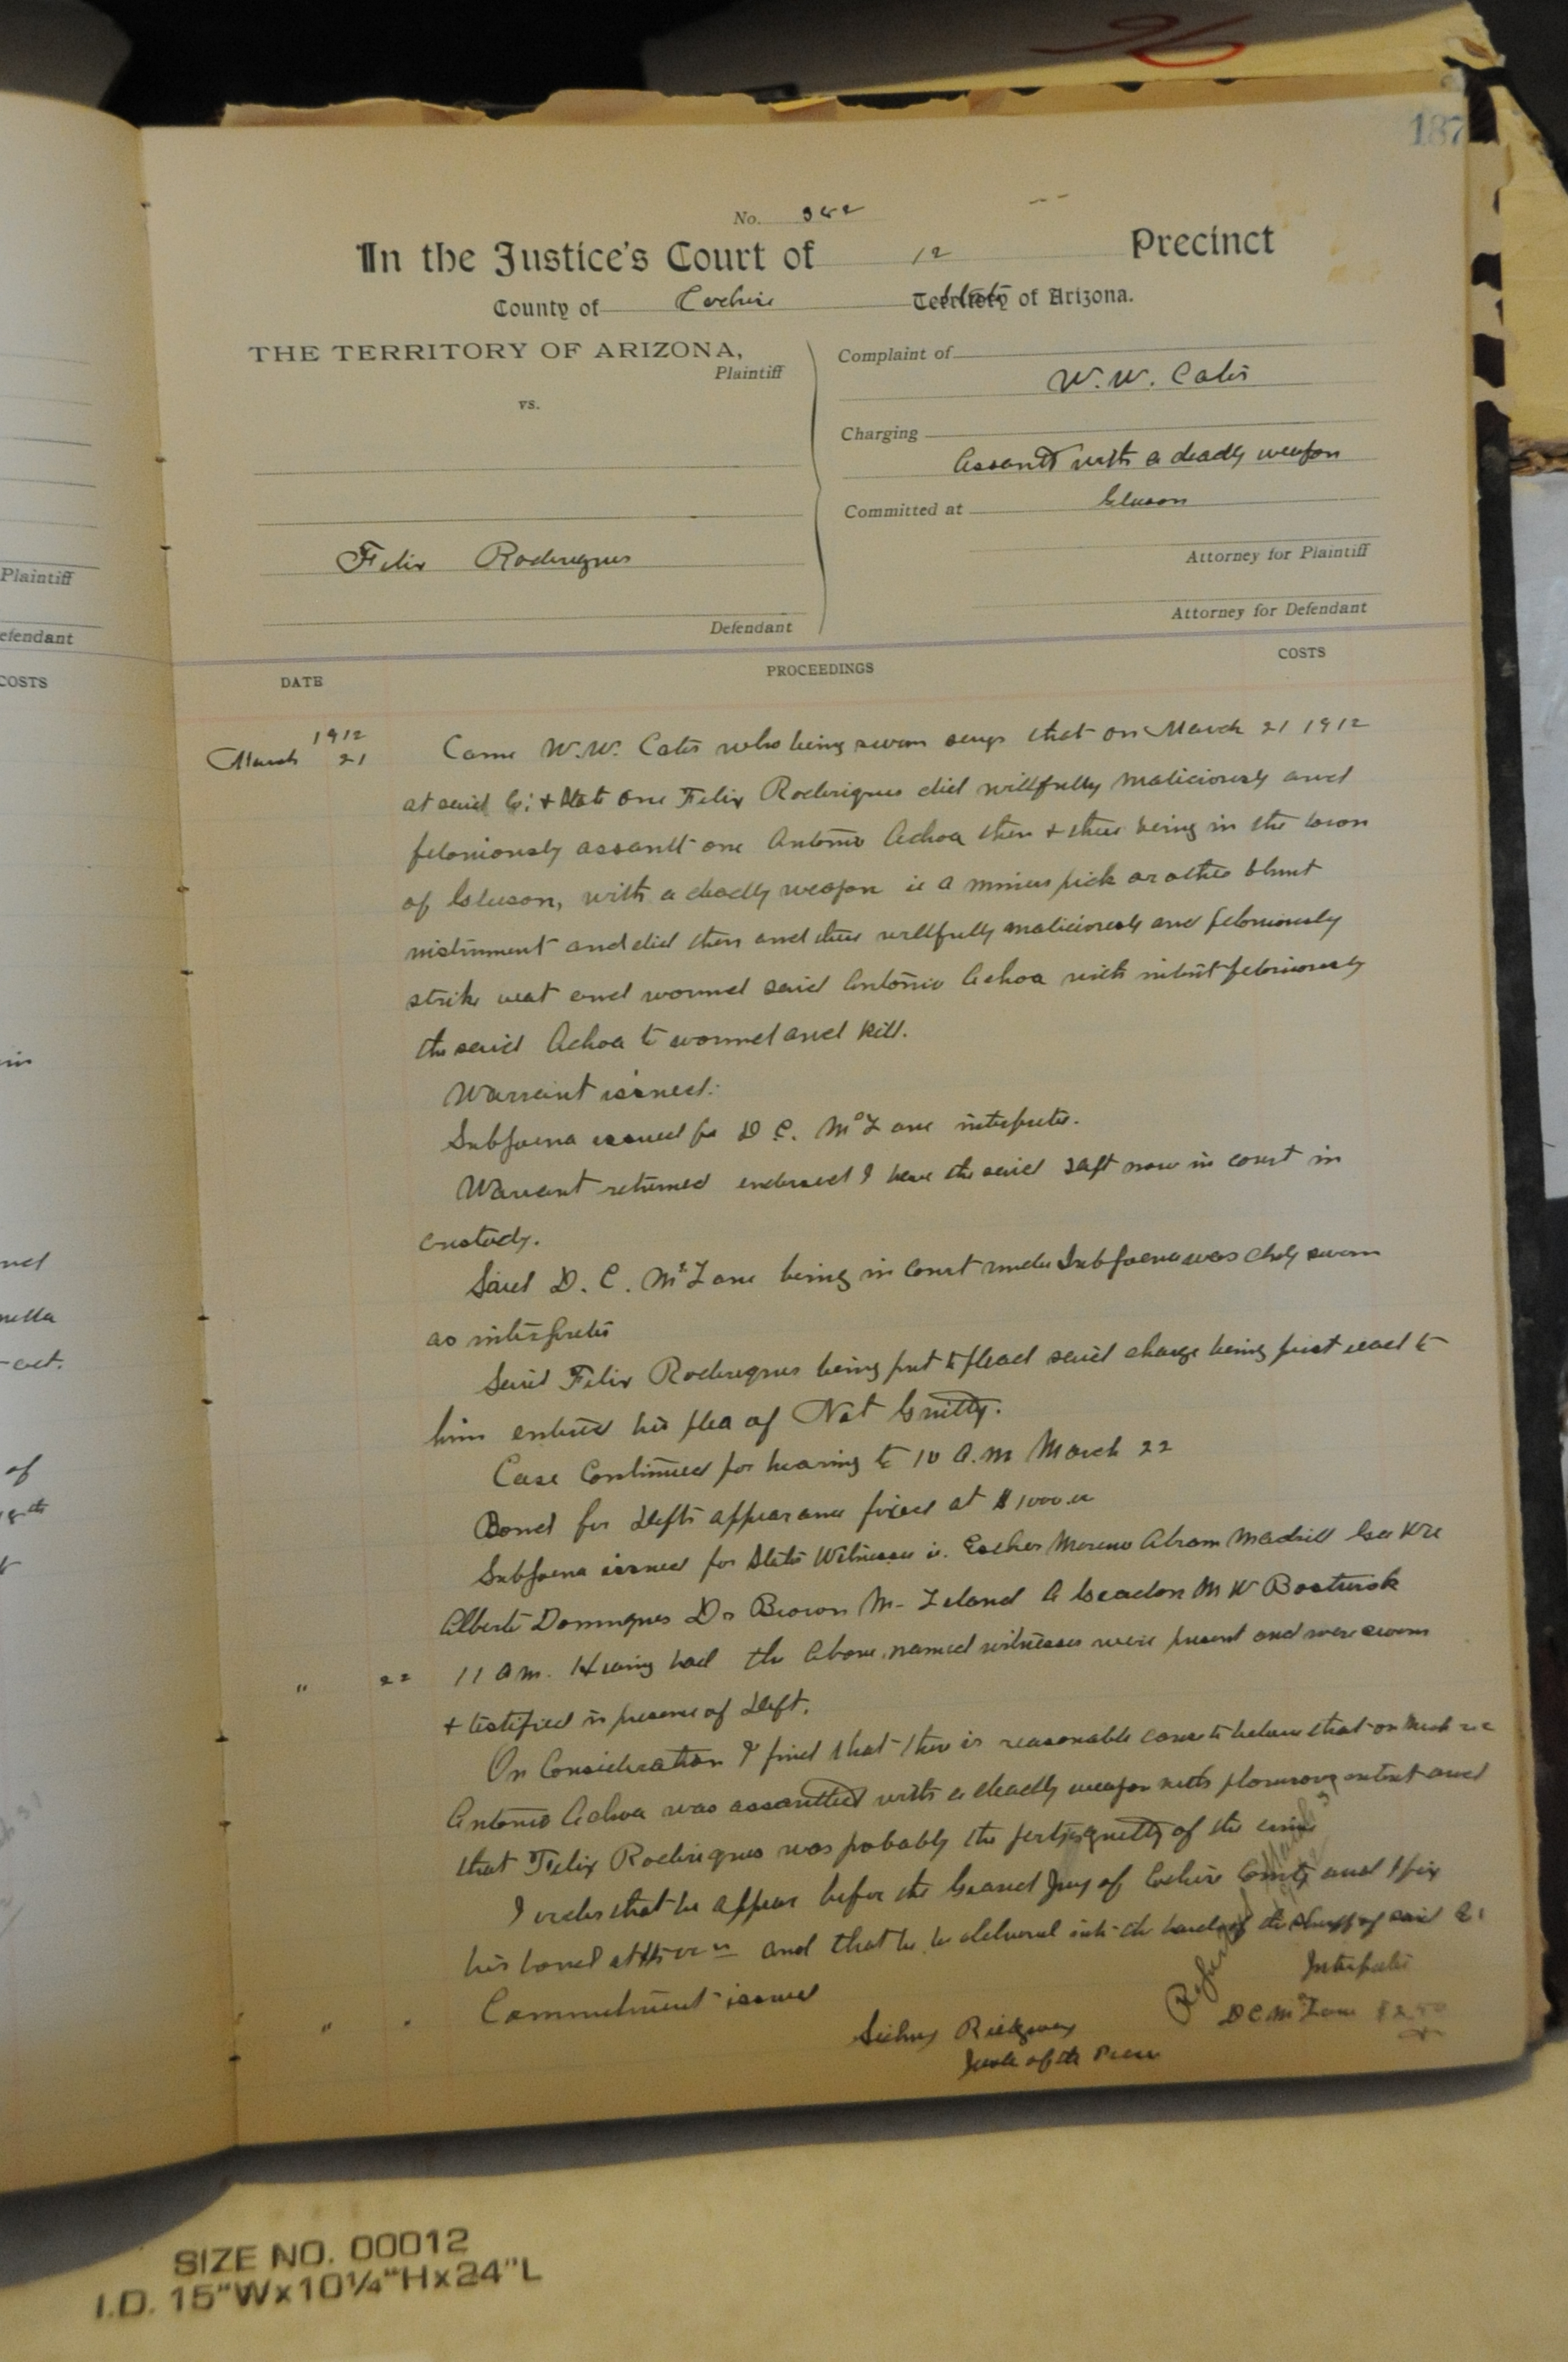 187
No. 342
In the Justice's Court of 12 Precinct
County of Cochise State of Arizona.
THE TERRITORY OF ARIZONA,
Plaintiff
vs.
Felix Roderigues
Defendant
Complaint of
W. W. Cates
Charging
Assault with a deadly weapon
Committed at Gleeson
Attorney for Plaintiff
Attorney for Defendant
DATE PROCEEDINGS COSTS
1912
March 21 Came W. W. Cates who being sworn says that on March 21 1912
at said Co. & State one Felix Roderigues did willfully maliciously and
feloniously assault one Antonio Achoa then & there being in the town
of Gleeson, with a deadly weapon ie a miners pick or other blunt
instrument and did then and there willfully maliciously and feloniously
strike beat and wound said Antonio Achoa with intent feloniously
the said Achoa to wound and kill.
Warrant issued.
Subpoena issued for D C. McZane interpreter.
Warrant returned endorsed I have the said deft now in court in
custody.
Said D. C. McZane being in Court under Subpoena was duly sworn
as interpreter
Said Felix Roderigues being put to plead said charge being first read to
him entered his plea of Not Guilty.
Case Continued for hearing to 10 A.M March 22
Bond for Defts appearance fixed at $1000.00
Subpoena issued for State Witnesses ie. Moreno Abram Madrill Geo
Alberto Domingues Dr Brown M. Leland A Geadon M W Bostwick
" 22 11 AM. Hearing had the above named witnesses were present and were sworn
& testified in presence of Deft.
On Consideration I find that there is reasonable cause to believe that on March
Antonio Achoa was assaulted with a deadly weapon with felonious intent and
that Felix Roderigues was probably the party guilty of the crime
I order that he appear before the Grand Jury of Cochise County and I fix
his bond at and that he be delivered into the hands of the Sheriff of said Co
" " Commitment issued
Sidney Ridgway
Justice of the Peace
Interpreter
D C McZane $2.50
Plaintiff
efendant
COSTS
of
SIZE NO. 00012
I.D. 15"Wx10¼"Hx24"L